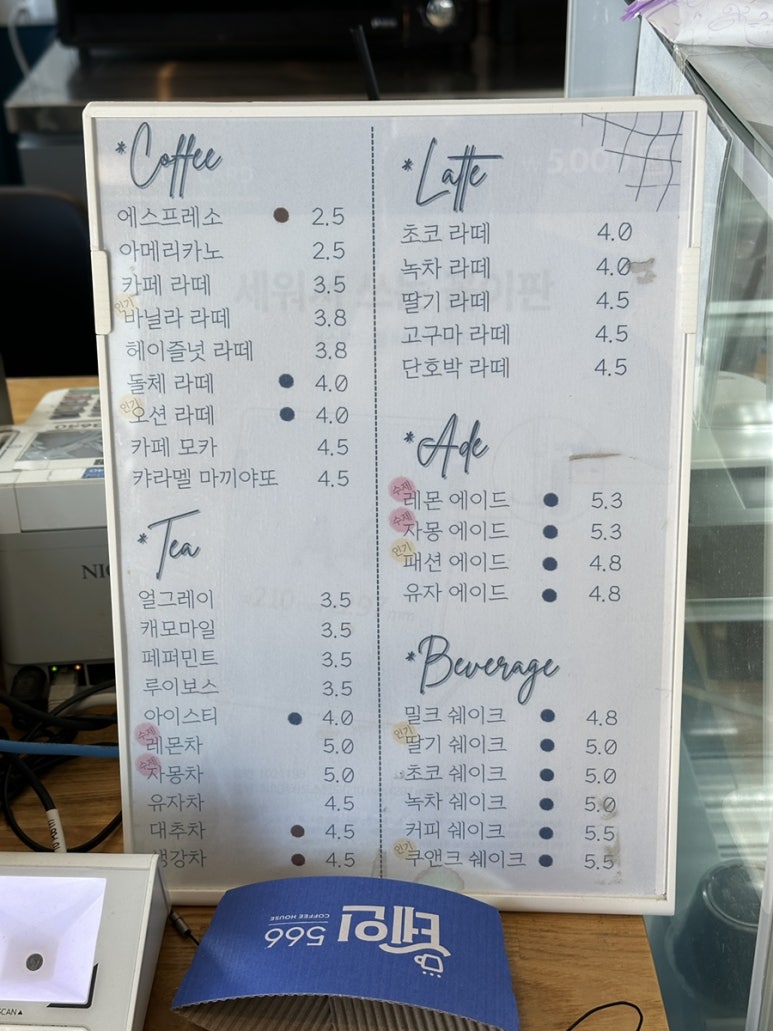 *Coffee
에스프레소 2.5
아메리카노 2.5
카페 라떼 3.5
인기
바닐라 라떼 3.8
헤이즐넛 라떼 3.8
돌체 라떼 4.0
인기
오션 라떼 4.0
카페 모카 4.5
캬라멜 마끼야또 4.5
*Tea
얼그레이 3.5
캐모마일 3.5
페퍼민트 3.5
루이보스 3.5
아이스티 4.0
수제
레몬차 5.0
수제
자몽차 5.0
유자차 4.5
대추차 4.5
생강차 4.5
*Latte
초코 라떼 4.0
녹차 라떼 4.0
딸기 라떼 4.5
고구마 라떼 4.5
단호박 라떼 4.5
*Ade
수제
레몬 에이드 5.3
수제
자몽 에이드 5.3
인기
패션 에이드 4.8
유자 에이드 4.8
*Beverage
밀크 쉐이크 4.8
인기
딸기 쉐이크 5.0
초코 쉐이크 5.0
녹차 쉐이크 5.0
커피 쉐이크 5.5
인기
쿠앤크 쉐이크 5.5
테인 566
COFFEE HOUSE
SCAN▲